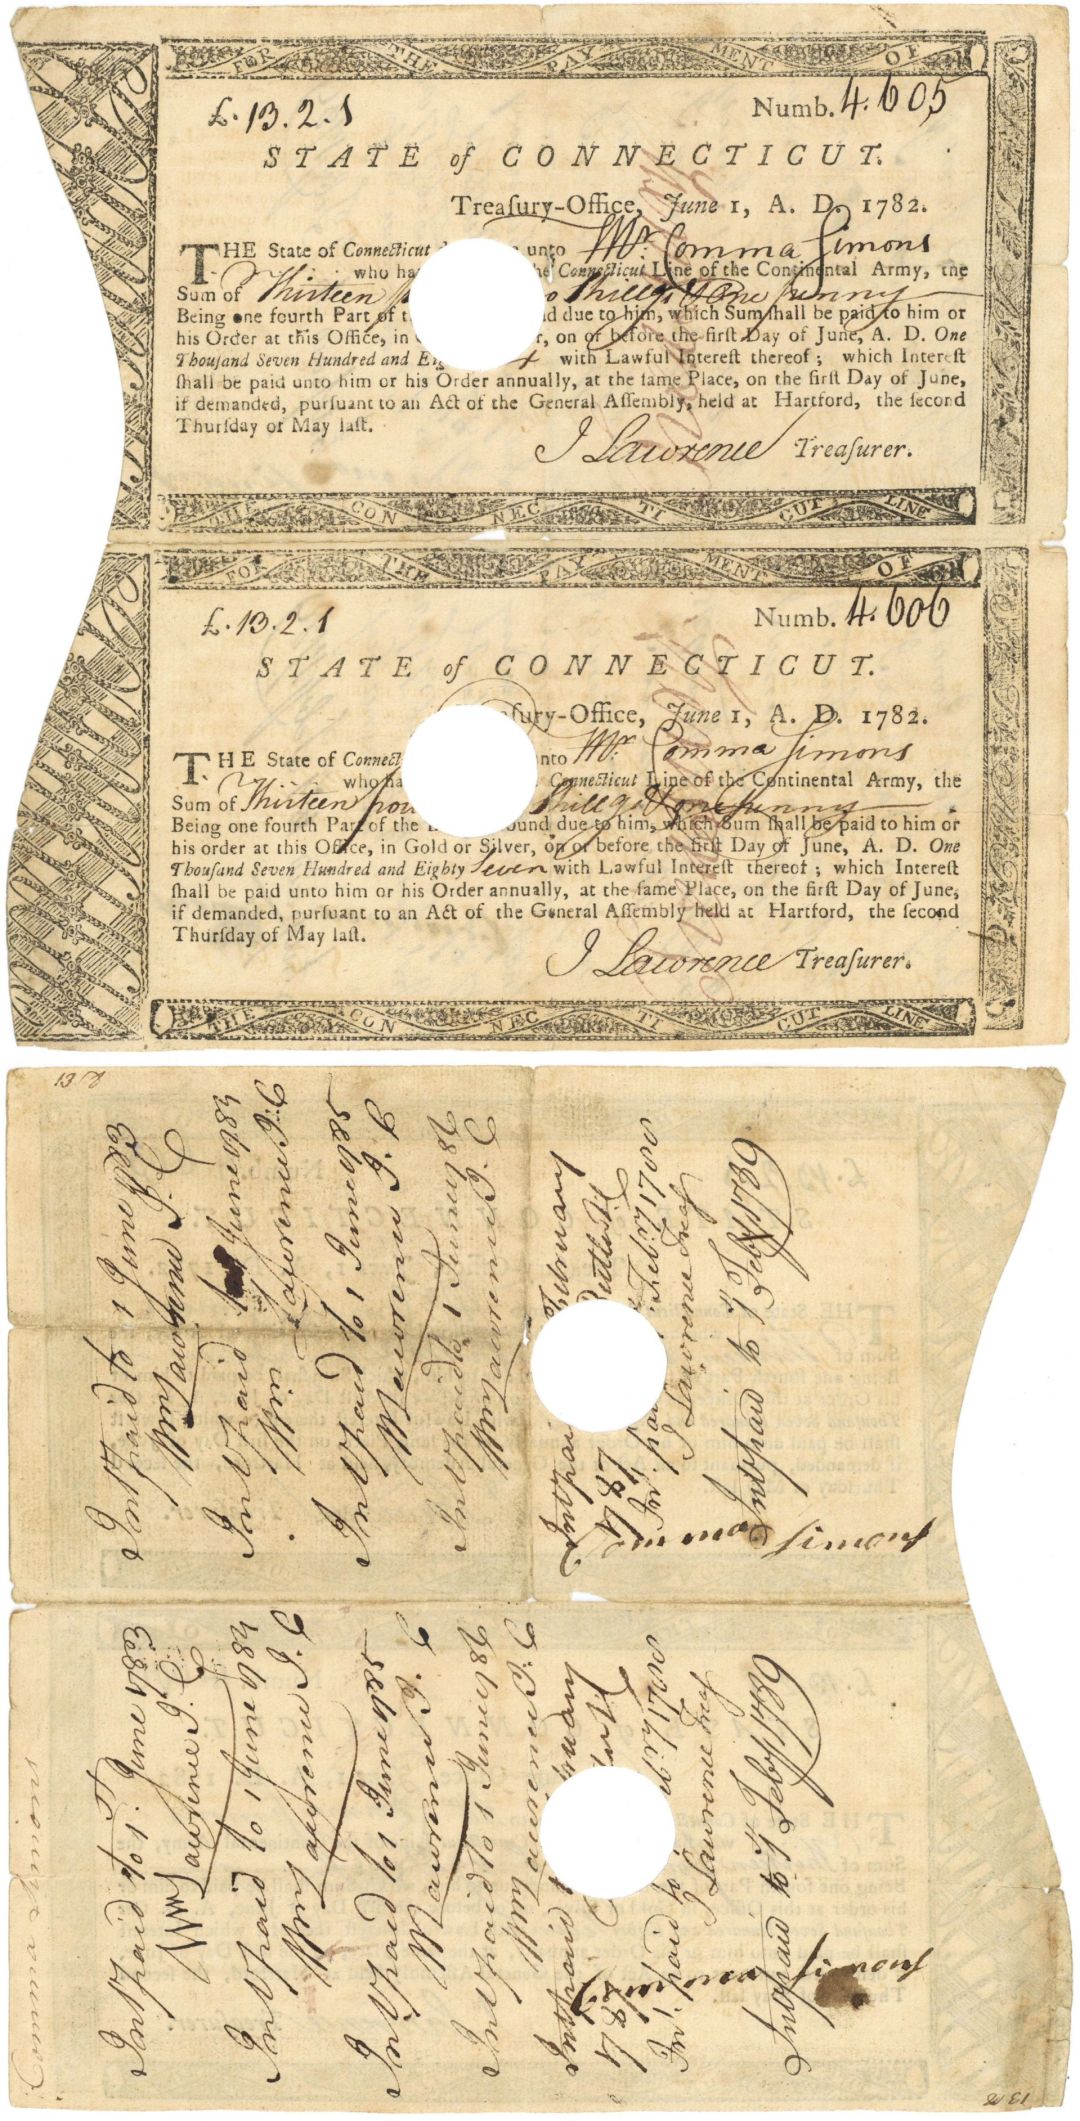 FOR THE PAY MENT OF
£.13.2.1 Numb. 4.605
STATE of CONNECTICUT.
Treaſury-Office, June 1, A. D. 1782.
THE State of Connecticut unto Mr. Comma Simons
who ha he Connecticut Line of the Continental Army, the
Sum of Thirteen o Shillgs & One penny
Being one fourth Part of t d due to him, which Sum ſhall be paid to him or
his Order at this Office, in r, on or before the firſt Day of June, A. D. One
Thouſand Seven Hundred and Eig with Lawful Intereſt thereof; which Intereſt
ſhall be paid unto him or his Order annually, at the ſame Place, on the firſt Day of June,
if demanded, purſuant to an Act of the General Aſſembly, held at Hartford, the ſecond
Thurſday of May laſt.
J Lawrence Treaſurer.
THE CON NEC TI CUT LINE
FOR THE PAY MENT OF
£.13.2.1 Numb. 4.606
STATE of CONNECTICUT.
ſury-Office, June 1, A. D. 1782.
THE State of Connect nto Mr. Comma Simons
who ha Connecticut Line of the Continental Army, the
Sum of Thirteen pou Shillgs & one penny
Being one fourth Part of the ound due to him, which Sum ſhall be paid to him or
his order at this Office, in Gold or Silver, on or before the firſt Day of June, A. D. One
Thouſand Seven Hundred and Eighty Seven with Lawful Intereſt thereof; which Intereſt
ſhall be paid unto him or his Order annually, at the ſame Place, on the firſt Day of June,
if demanded, purſuant to an Act of the General Aſſembly held at Hartford, the ſecond
Thurſday of May laſt.
J Lawrence Treaſurer.
THE CON NEC TI CUT LINE
Int paid to 1 June
Wm Lawrence
Int paid to 1 June 1783
Wm Lawrence
Int paid to 1 June 1785
W Lawrence
Int paid to 1 June 1786
Wm Lawrence
Int pai February
Int. paid Feb.ry 17
J Lawrence Treasr
Int paid to 1 Feby 1789
Comma Simons
Int paid to 1 June
Wm Lawrence
Int paid to 1 June 1783
Wm Lawrence
Int paid to 1 June 1785
W Lawrence
Int paid to 1 June 1786
Wm Lawrence
Int paid
Int. paid to
J Lawrence Treasr
Int paid to 1 Feby 1789
Comma Simons
Comma Simons